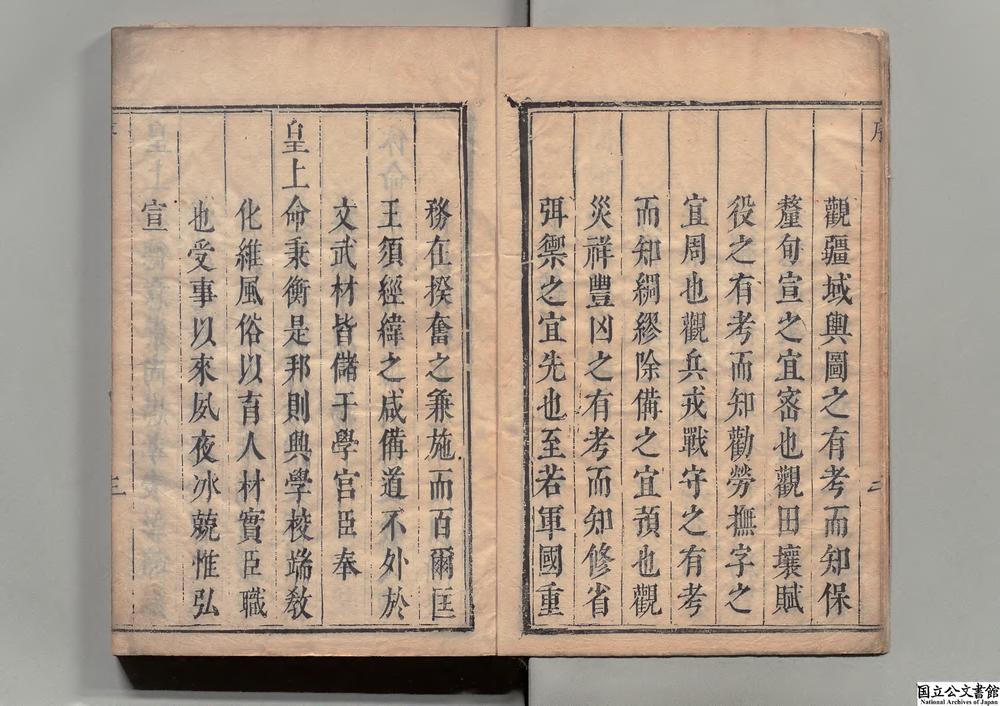 序
觀疆域輿圖之有考而知保
釐旬宣之宜宻也觀田壤賦
役之有考而知勸勞撫字之
宜周也觀兵戎戰守之有考
而知綢繆除備之宜預也觀
災祥豐凶之有考而知修省
弭禦之宜先也至若軍國重
二
務在揆奮之兼施而百爾匡
王須經緯之咸備道不外於
文武材皆儲于學官臣奉
皇上命秉衡是邦則興學校端教
化維風俗以育人材實臣職
也受事以來夙夜氷兢惟弘
宣
三
国立公文書館
National Archives of Japan